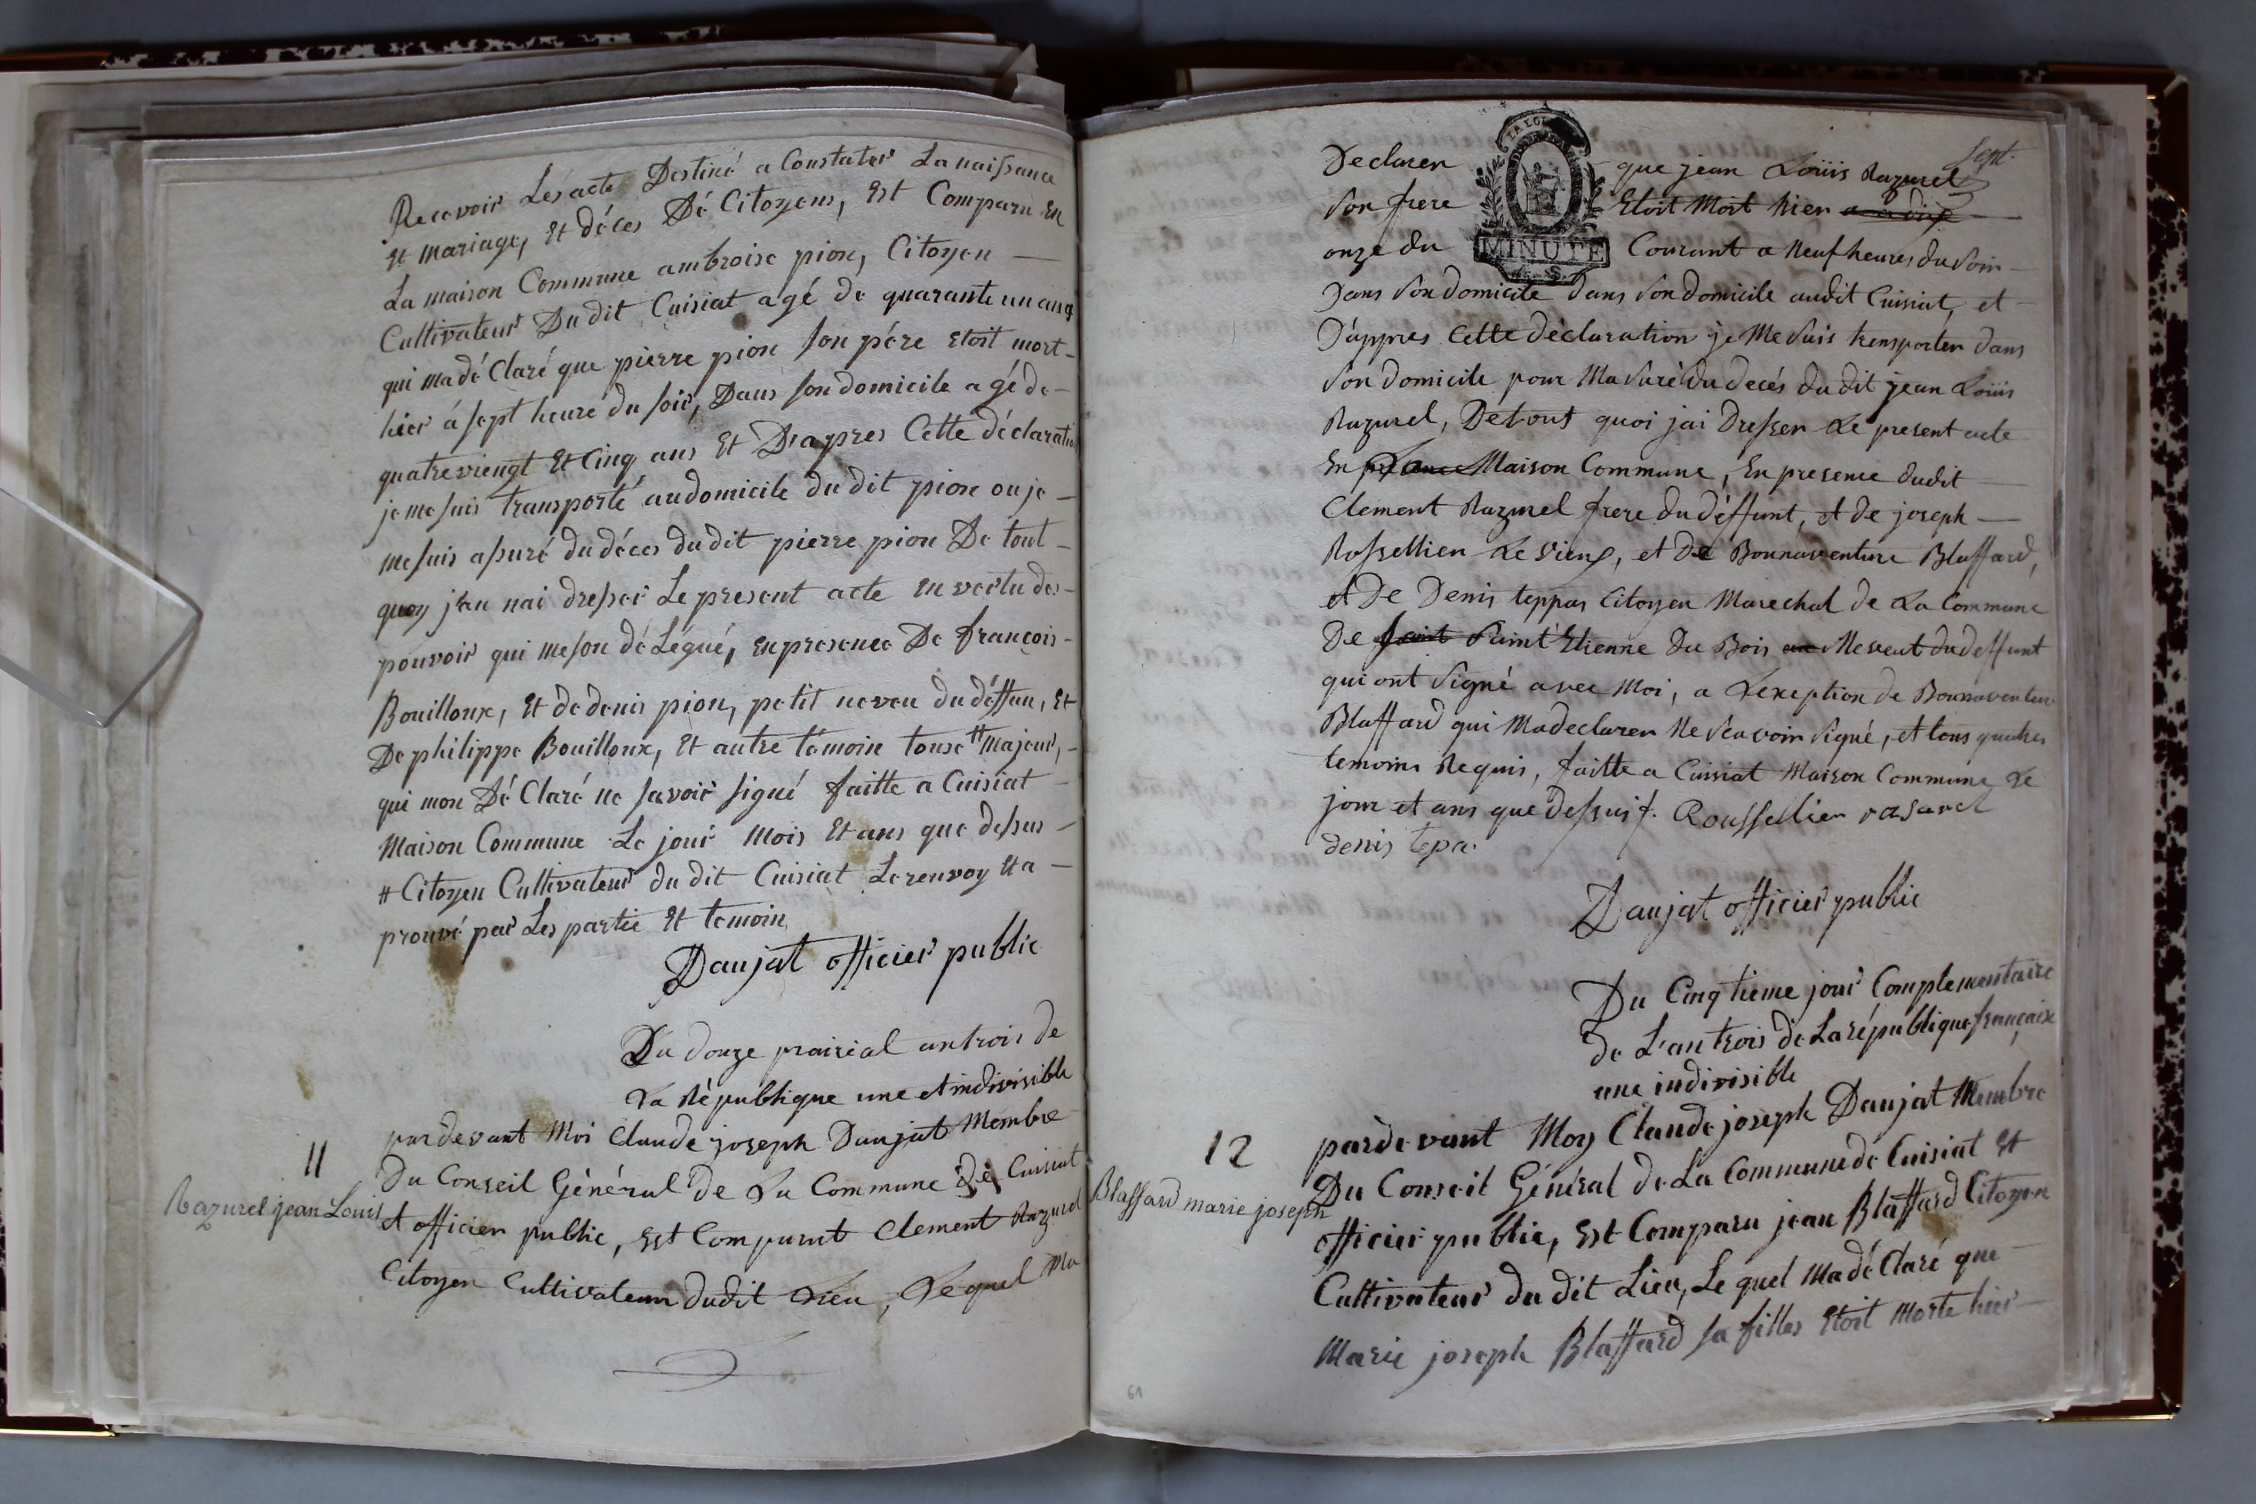 Recevoir Les acte Destiné a Constater La naissance
Et mariage, Et déces Dé Citoyens, Est Comparu En
La maison Commune ambroise pion, Citoyen
Cultivateur Du dit Cuisiat agé de quarante un ans
qui ma dé Claré que pierre pion son pére Etoit mort
hier á sept heure du soir, Dans son domicile a gé de
quatre viengt Et Cinq ans Et Dra pres Cette déclaration
je me suis transporté au domicile du dit pion ou je
me suis asuré du déces du dit pierre pion De tout
quoy j'an nai dresser Le present acte en vertu des
pouvoir qui me son dé Légué, en presence De françois
Bouilloux, Et de denis pion, petit neveu du déffun, Et
De philippe Bouilloux, Et autre témoin touse # majeur,
qui mon Dé Claré ne savoir signé faitte a Cuisiat
Maison Commune Le jour Mois Et ans que dessus
# Citoyen Cultivateur du dit Cuisiat Le renvoy Et a
prouvé par Les partie Et temoin
Daujat officier public
Du douze prairial an trois de
La République une et indivisible
11
par devant Moi Claude joseph Daujat Membre
Du Conseil Général de La Commune De Cuisiat
Razurel jean Louis
et officier public, est Comparut Clement Razurel
Citoyen Cultivateur dudit Lieu, Le quel Ma
Sept.
Declarer que jean Louis Razurel
son frere Etoit Mort hier a
LA LOI
MINUTE
onze du Courant a Neuf heures du Soir
Dans Son domicile Dans Son domicile audit Cuisiat, et
D'appres Cette déclaration je Me Suis transporter Dans
Son domicile pour Ma Suré du decés du dit jean Louis
Razurel, De tout quoi jai Dresser Le present acte
En Maison Commune, En presence dudit
Clement Razurel frere du déffunt, et De joseph
Rossellier Le vieux, et De Bonnaventure Blaffard,
et De Denis teppas Citoyen Marechal de La Commune
De Saint Etienne Du Bois Neveut du deffunt
qui ont Signé avec Moi, a L'exeption de Bonnaventure
Blaffard qui Ma declarer Ne Scavoir Signé, et tous quatres
temoins Requis, faitte a Cuisiat Maison Commune Le
jour et ans que Dessus. Roussellier rasurel
denis tepa.
Daujat officier public
Du Cinqtieme jour Complementaire
de L'an trois de La république française
une indivisible
12
par devant Moy Claude joseph Daujat Membre
Du Conseil Général de La Commune de Cuisiat Et
Blaffard marie joseph
officier public, Est Comparu jean Blaffard Citoyen
Cultivateur du dit Lieu, Le quel Ma dé Claré que
Marie joseph Blaffard sa filles Etoit Morte hier
61